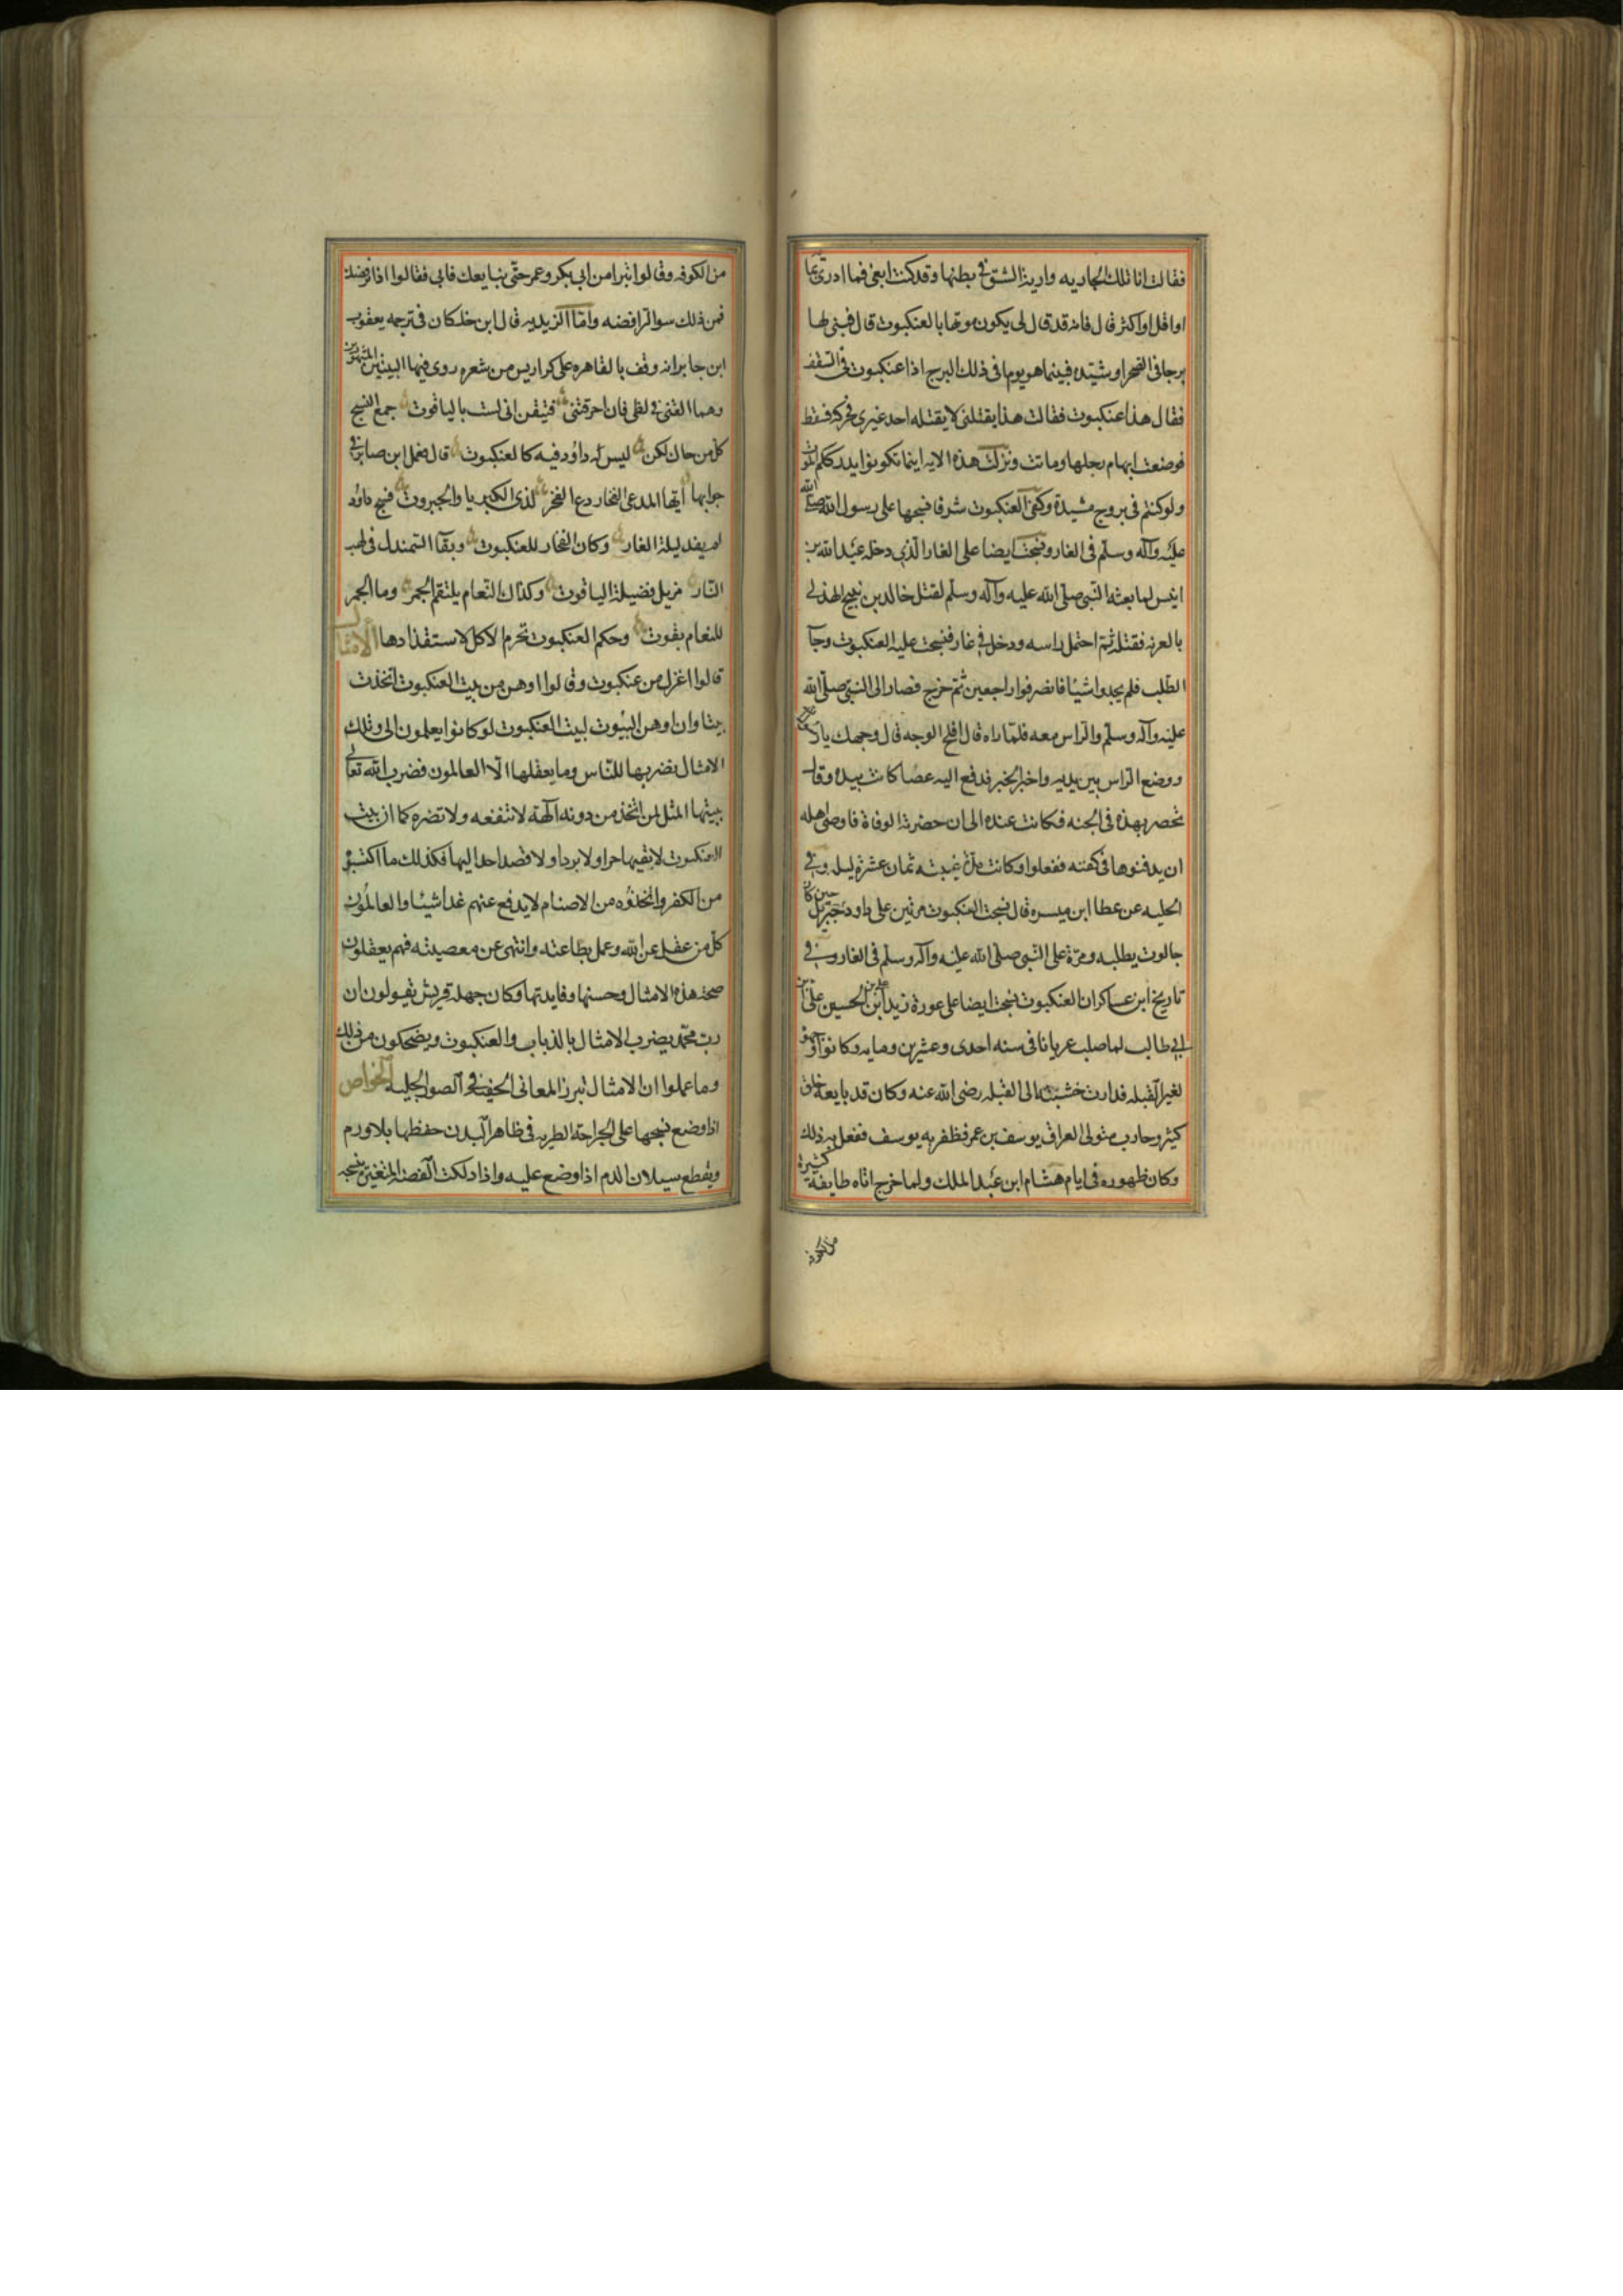 فقالت انا تلك الجاريه وارية الشق في بطنها وقد كنت ابغي فما ادري بما
اواقل اواكثر قال فانه قد قال لي يكون موتها بالعنكبوت قال فبنى لها
برجا في الصحرا وشيده فبينما هو يوما في ذلك البرج اذا عنكبوت في السقف
فقال هذا عنكبوت فقالت هذا يقتلني لا يقتله احد غيري فحركه فسقط
فوضعت ابهام رجلها وماتت ونزلت هذه الايه اينما تكونوا يدرككم الموت
ولو كنتم في بروج مشيدة وكفى العنكبوت شرفا نسجها على رسول الله صلى الله
عليه وآله وسلم في الغار ونسجت ايضا على الغار الذي دخله عبد الله بن
انيس لما بعثه النبي صلى الله عليه وآله وسلم لقتل خالد بن نبيح الهذلي
بالعرنه فقتله ثم احتمل راسه ودخل في غار فنسجت عليه العنكبوت وجآ
الطلب فلم يجدوا شيئا فانصرفوا راجعين ثم خرج فصار الى النبي صلى الله
عليه وآله وسلم والراس معه فلما راه قال افلح الوجه قال وجهك يا رسول الله
ووضع الراس بين يديه واخبر الخبر فدفع اليه عصا كانت بيده وقال
تخصر بهذه في الجنه فكانت عنده الى ان حضرته الوفاة فاوصى اهله
ان يدفنوها في كفنه ففعلوا وكانت مدة غيبته ثمان عشرة ليله وفي
الحليه عن عطا ابن ميسره قال نسجت العنكبوت مرتين على داود حين كان
جالوت يطلبه ومرة على النبي صلى الله عليه وآله وسلم في الغار وفي
تاريخ ابن عساكر ان العنكبوت نسجت ايضا على عورة زيد ابن علي بن الحسين بن علي بن
ابي طالب لما صلب عريانا في سنه احدى وعشرين ومايه وكانوا وجهوه
لغير القبله فدارت خشبته الى القبله رضي الله عنه وكان قد بايعه خلق
كثير وحارب متولي العراق يوسف بن عمر فظفر به يوسف ففعل به ذلك
وكان ظهوره في ايام هشام ابن عبد الملك ولما خرج اتاه طايفة كثيرة
من الكوفه
من الكوفه وقالوا تبرا من ابي بكر وعمر حتى نبايعك فابى فقالوا اذا نرفضك
فمن ذلك سموا الرافضه واما الزيديه قال ابن خلكان في ترجمه يعقوب
ابن جابر انه وقف بالقاهره على كراريس من شعره روى فيها البيتين المشهورين
وهما القني في لظى فان احرقتني فتيقن اني لست بالياقوت جمع النسج
كل من حاك لكن ليس له داؤد فيه كالعنكبوت قال فعمل ابن صابر في
جوابها ايها المدعي الفخار دع الفخر لذي الكبريا والجبروت فنسج داؤد
لم يفد ليلة الغار وكان الفخار للعنكبوت وبقآ السمندل في لهب
النار مزيل فضيلة الياقوت وكذاك النعام يلتقم الجمر وما الجمر
للنعام بقوت وحكم العنكبوت تحرم الاكل لاستقذارها الامثال
قالوا اغزل من عنكبوت وقالوا اوهن من بيت العنكبوت اتخذت
بيتا وان اوهن البيوت لبيت العنكبوت لو كانوا يعلمون الى وتلك
الامثال نضربها للناس وما يعقلها الا العالمون فضرب الله تعالى
ببيتها المثل لمن اتخذ من دونه آلهة لا تنفعه ولا تضره كما ان بيت
العنكبوت لا يقيها حرا ولا بردا ولا قصد احد اليها فكذلك ما اكتسبوه
من الكفر واتخذوه من الاصنام لا يدفع عنهم غدا شيئا والعالمون
كل من عقل عن الله وعمل بطاعته وانتهى عن معصيته فهم يعقلون
صحة هذه الامثال وحسنها وفايدتها وكان جهلة قريش تقولون ان
رب محمد يضرب الامثال بالذباب والعنكبوت ويضحكون من ذلك
وما علموا ان الامثال تبرز المعاني الخفية في الصور الجليه الخواص
اذا وضع نسجها على الجراحة الطريه في ظاهر البدن حفظها بلا ورم
ويقطع سيلان الدم اذا وضع عليه واذا دلكت الفضة المتغيرة بنسجه